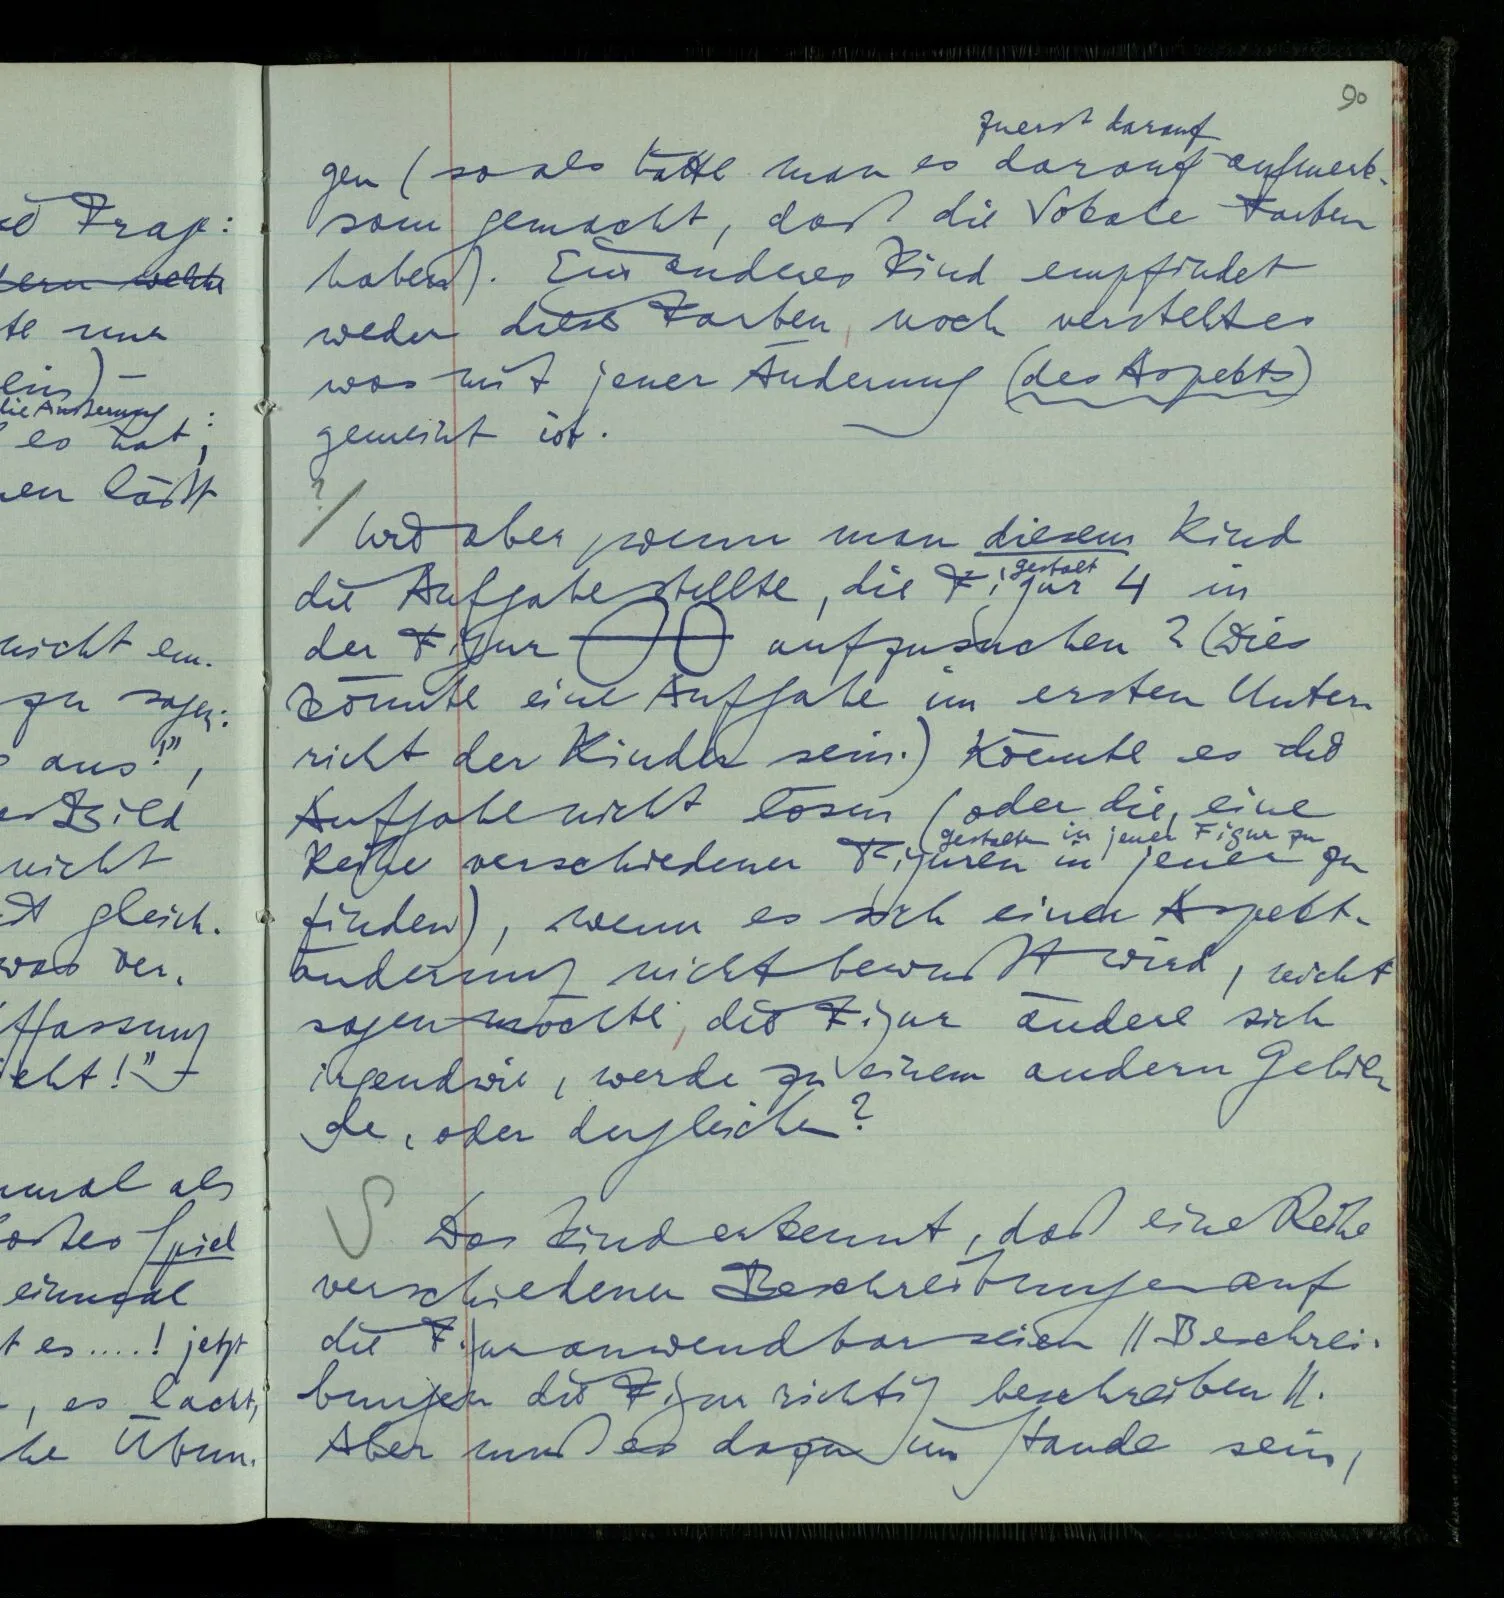 90
se Frage:
tern welche
te nur
eins) –
die Äußerung
es hat;
nen läßt
nicht em-
zu sagen:
aus!",
Bild
nicht
gleich-
was ver-
ffassung
icht!" –
nmal als
Spiel
einmal
t es....! jetzt
, es lacht,
he Übun-
zuerst darauf
gen (so als hätte man es darauf aufmerk-
sam gemacht, daß die Vokale Farben
haben). Ein anderes Kind empfindet
weder diese Farben, noch versteht es
was mit jener Änderung (des Aspekts)
gemeint ist.
? /
Und aber wenn man diesem Kind
gestalt
die Aufgabe stellte, die Figur 4 in
der Figur aufzusuchen? (Dies
könnte eine Aufgabe im ersten Unter-
richt der Kinder sein.) Könnte es die
Aufgabe nicht lösen (oder die, eine
gestalten in jener Figur zu
Reihe verschiedener Figuren in jener zu
finden), wenn es sich einer Aspekt-
änderung nicht bewußt wird, nicht
sagen möchte, die Figur ändere sich
irgendwie, werde zu einem andern Gebil-
de, oder dergleichen?
S
Das Kind erkennt, daß eine Reihe
verschiedener Beschreibungen auf
die Figur anwendbar seien // Beschrei-
bungen die Figur richtig beschreiben //.
Aber muß es dazu im Stande sein,